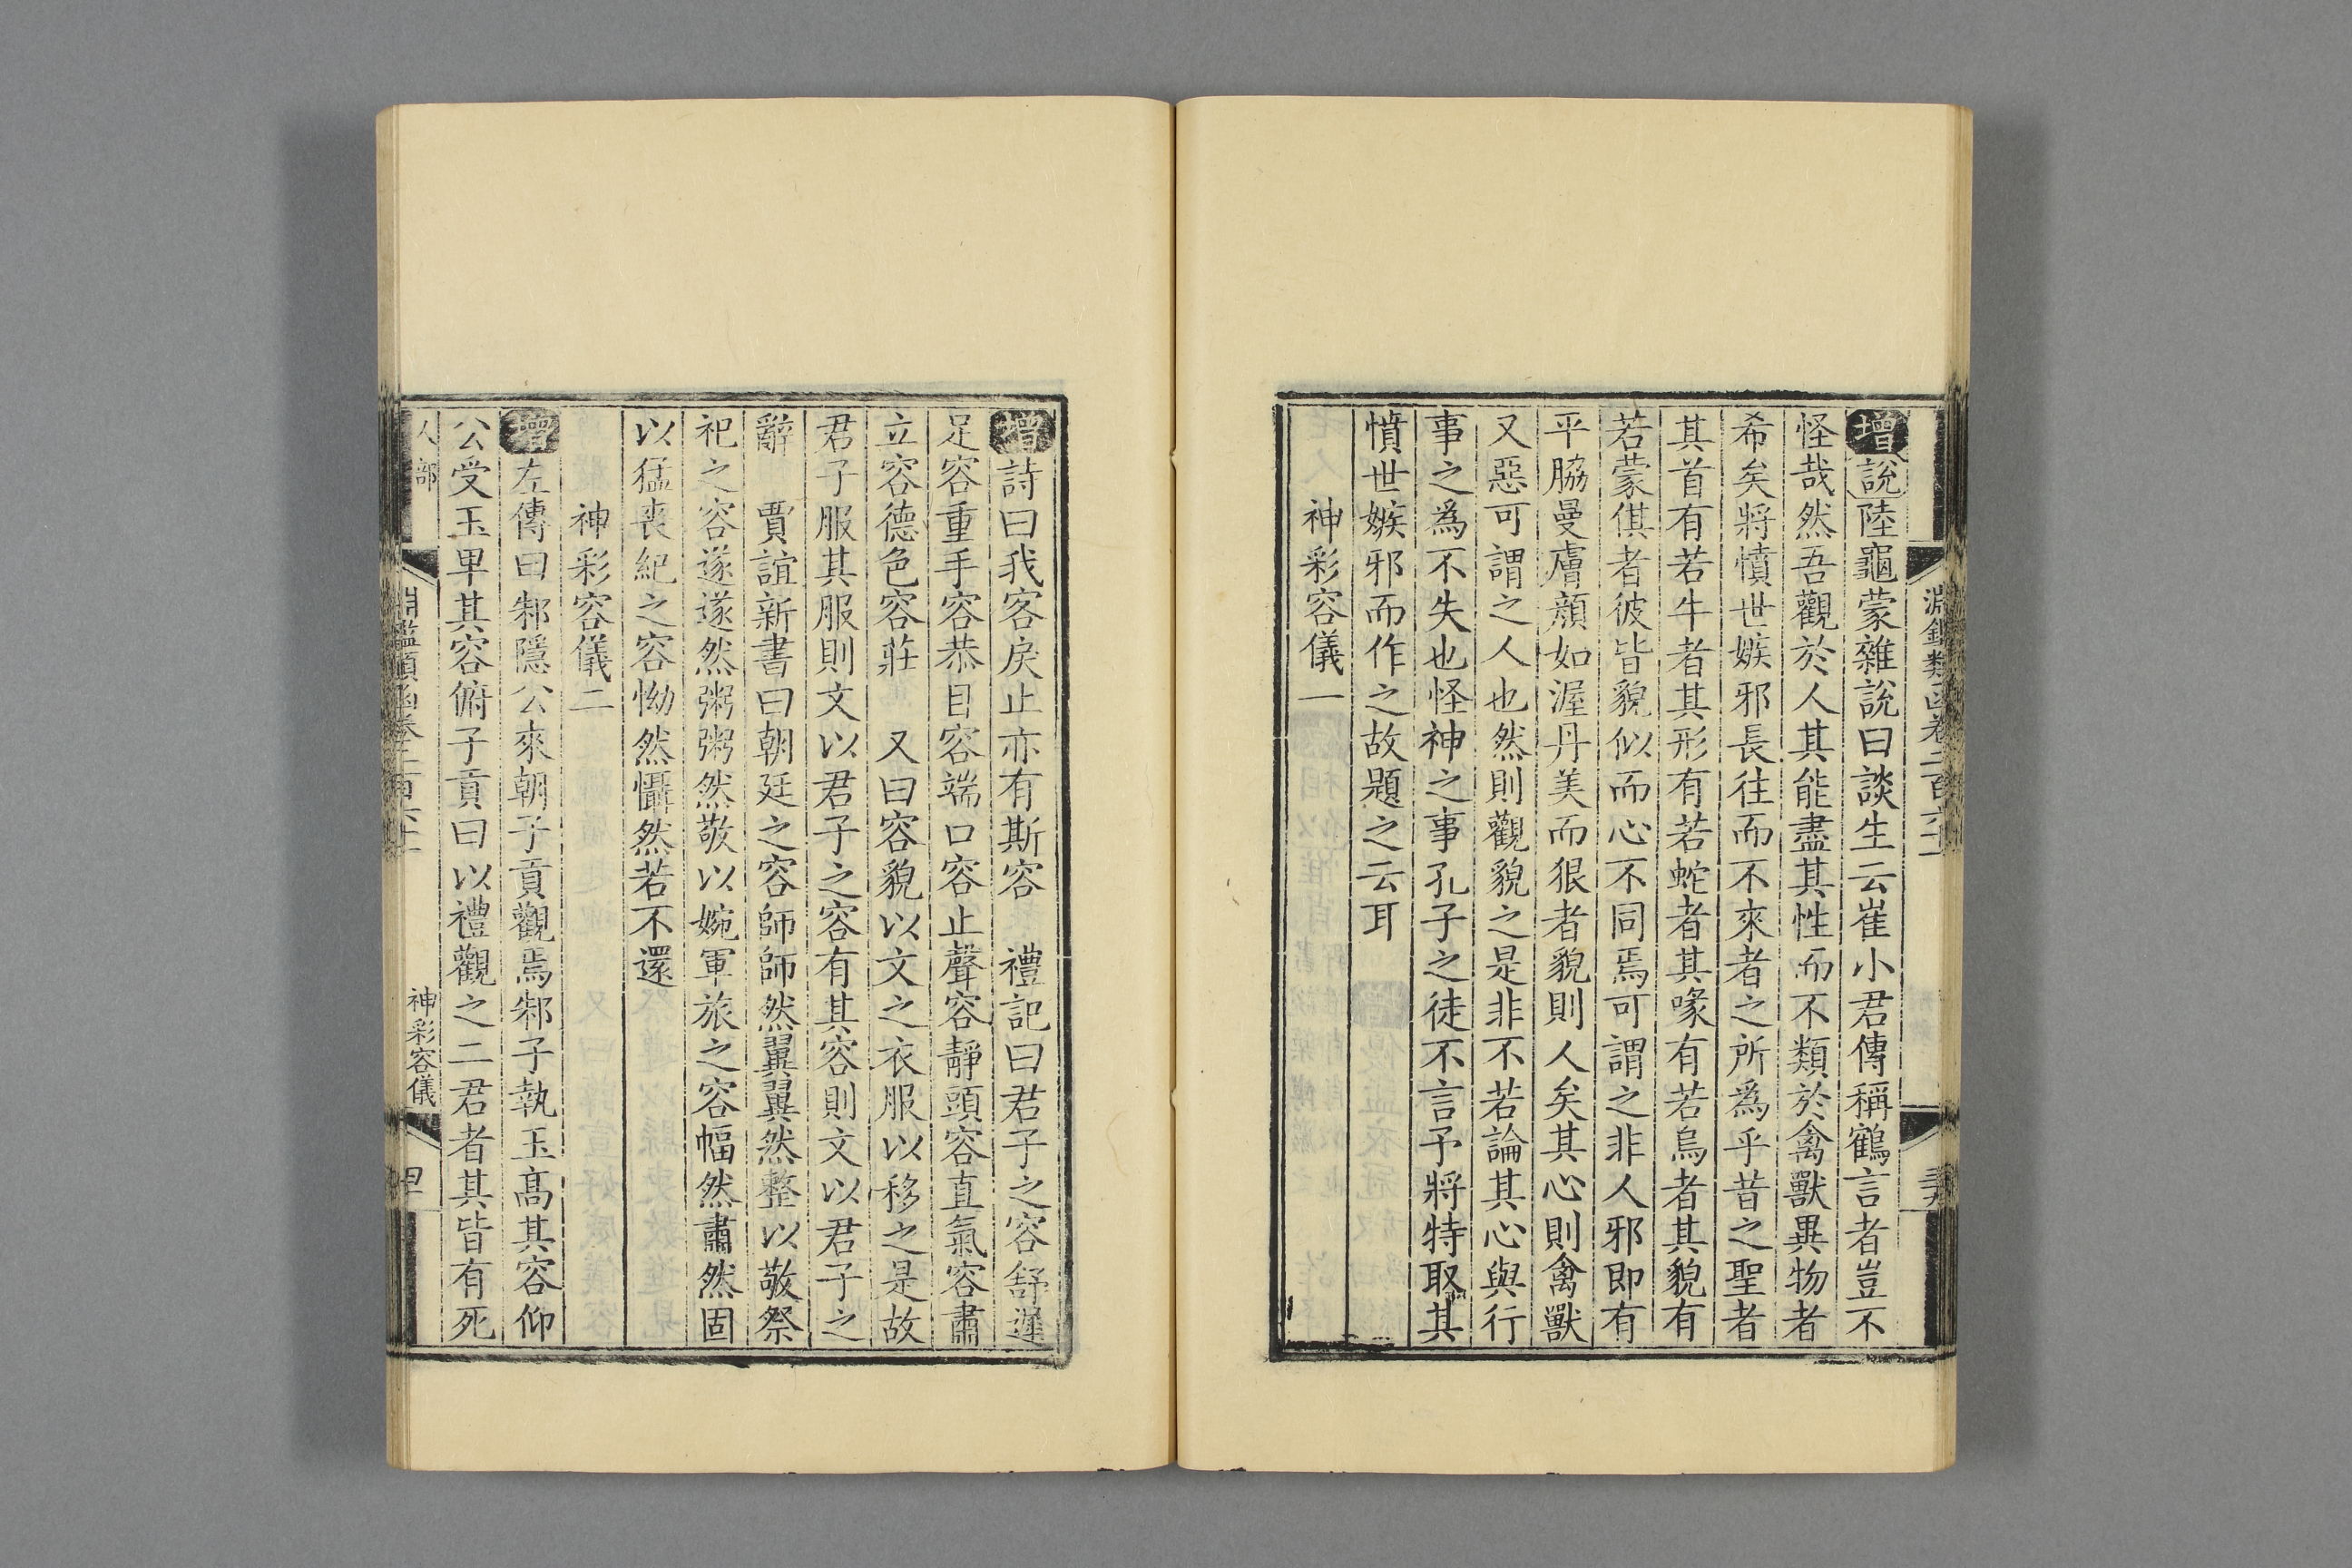 淵鑑類函卷二百六十一
增說陸龜蒙雜說曰談生云崔小君傳稱鶴言者豈不
怪哉然吾觀於人其能盡其性而不類於禽獸異物者
希矣將憤世嫉邪長往而不來者之所為乎昔之聖者
其首有若牛者其形有若蛇者其喙有若烏者其貌有
若蒙倛者彼皆貌似而心不同焉可謂之非人邪即有
平脇曼膚顏如渥丹美而狠者貌則人矣其心則禽獸
又惡可謂之人也然則觀貌之是非不若論其心與行
事之為不失也怪神之事孔子之徒不言予將特取其
憤世嫉邪而作之故題之云耳
神彩容儀一
增詩曰我客戾止亦有斯容 禮記曰君子之容舒遲
足容重手容恭目容端口容止聲容靜頭容直氣容肅
立容德色容莊 又曰容貌以文之衣服以移之是故
君子服其服則文以君子之容有其容則文以君子之
辭 賈誼新書曰朝廷之容師師然翼翼然整以敬祭
祀之容遂遂然粥粥然敬以婉軍旅之容幅然肅然固
以猛喪紀之容怮然懾然若不還
神彩容儀二
增左傳曰邾隱公來朝子貢觀焉邾子執玉高其容仰
公受玉卑其容俯子貢曰以禮觀之二君者其皆有死
人部
淵鑑類函卷二百六十一
神彩容儀